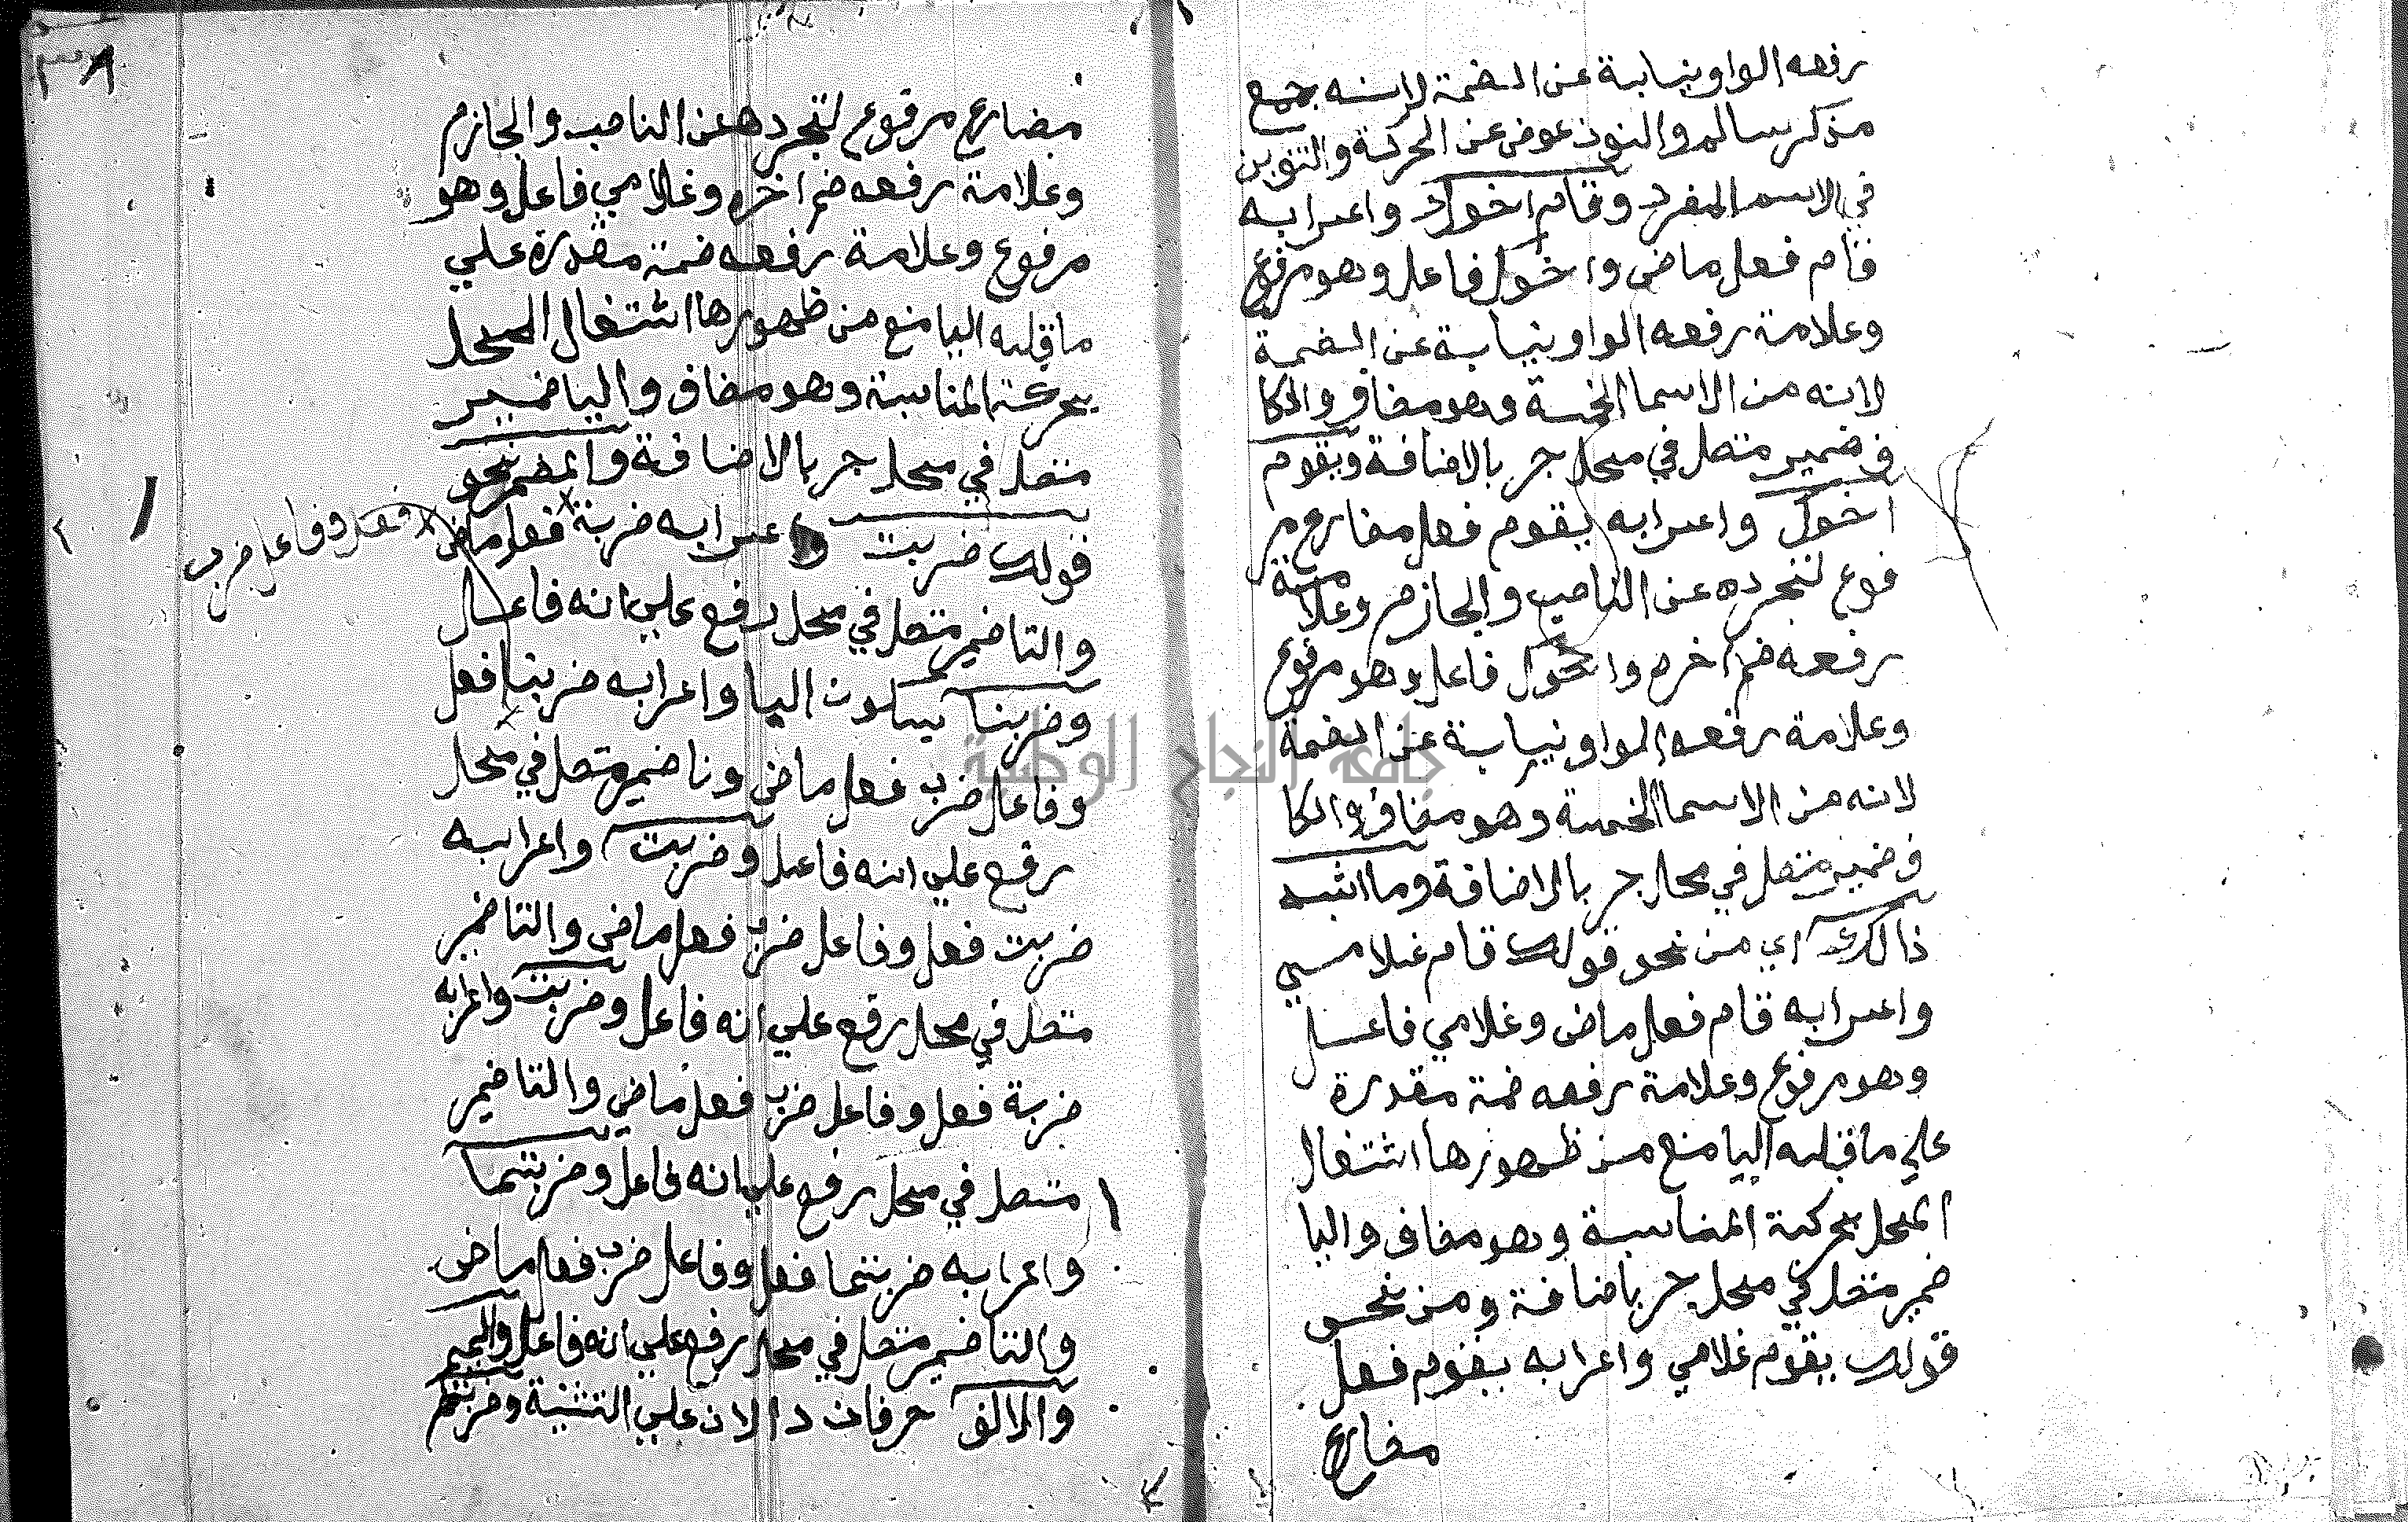 رفعه الواو نيابة عن الضمة لانه جمع
مذكر سالم والنون عوض عن الحركة والتنوين
في الاسم المفرد وقام اخوك واعرابه
قام فعل ماض واخوك فاعل وهو مرفوع
وعلامة رفعه الواو نيابة عن الضمة
لانه من الاسما الخمسة وهو مضاف والكا
ف ضمير متصل في محل جر بالاضافة ويقوم
اخوك واعرابه يقوم فعل مضارع مر
فوع لتجرده عن الناصب والجازم وعلامة
رفعه ضم اخره واخوك فاعل وهو مرفوع
وعلامة رفعه الواو نيابة عن الضمة
لانه من الاسما الخمسة وهو مضاف والكا
ف ضمير متصل في محل جر بالاضافة وما اشبه
ذالك اي من نحو قولك قام غلامي
واعرابه قام فعل ماض وغلامي فاعل
وهو مرفوع وعلامة رفعه ضمة مقدرة
علي ما قبله اليا منع من ظهورها اشتغال
المحل بحركة المناسبة وهو مضاف واليا
ضمير متصل في محل جر باضافة ومن نحو
قولك يقوم غلامي واعرابه يقوم فعل
مضارع
٣٨
مضارع مرفوع لتجرده عن الناصب والجازم
وعلامة رفعه ضم اخره وغلامي فاعل وهو
مرفوع وعلامة رفعه ضمة مقدرة علي
ما قبله اليا منع من ظهورها اشتغال المحل
بحركة المناسبة وهو مضاف واليا ضمير
متصل في محل جر بالاضافة والمضمر نحو
قولك ضربت واعرابه ضربة فعل ماض
فعل وفاعل ضرب
والتا ضمير متصل في محل رفع علي انه فاعل
وضربنا بسكون اليا واعرابه ضربنا فعل
وفاعل ضرب فعل ماض ونا ضمير متصل في محل
رفع علي انه فاعل وضربت واعرابه
ضربت فعل وفاعل ضرب فعل ماض والتا ضمير
متصل في محل رفع علي انه فاعل وضربت واعرابه
ضربة فعل وفاعل ضرب فعل ماض والتا ضمير
متصل في محل رفع علي انه فاعل وضربتما
واعرابه ضربتما فعل وفاعل ضرب فعل ماض
والتا ضمير متصل في محل رفع علي انه فاعل والميم
والالف حرفان دالان علي التثنية وضربتم
جامعة النجاح الوطنية